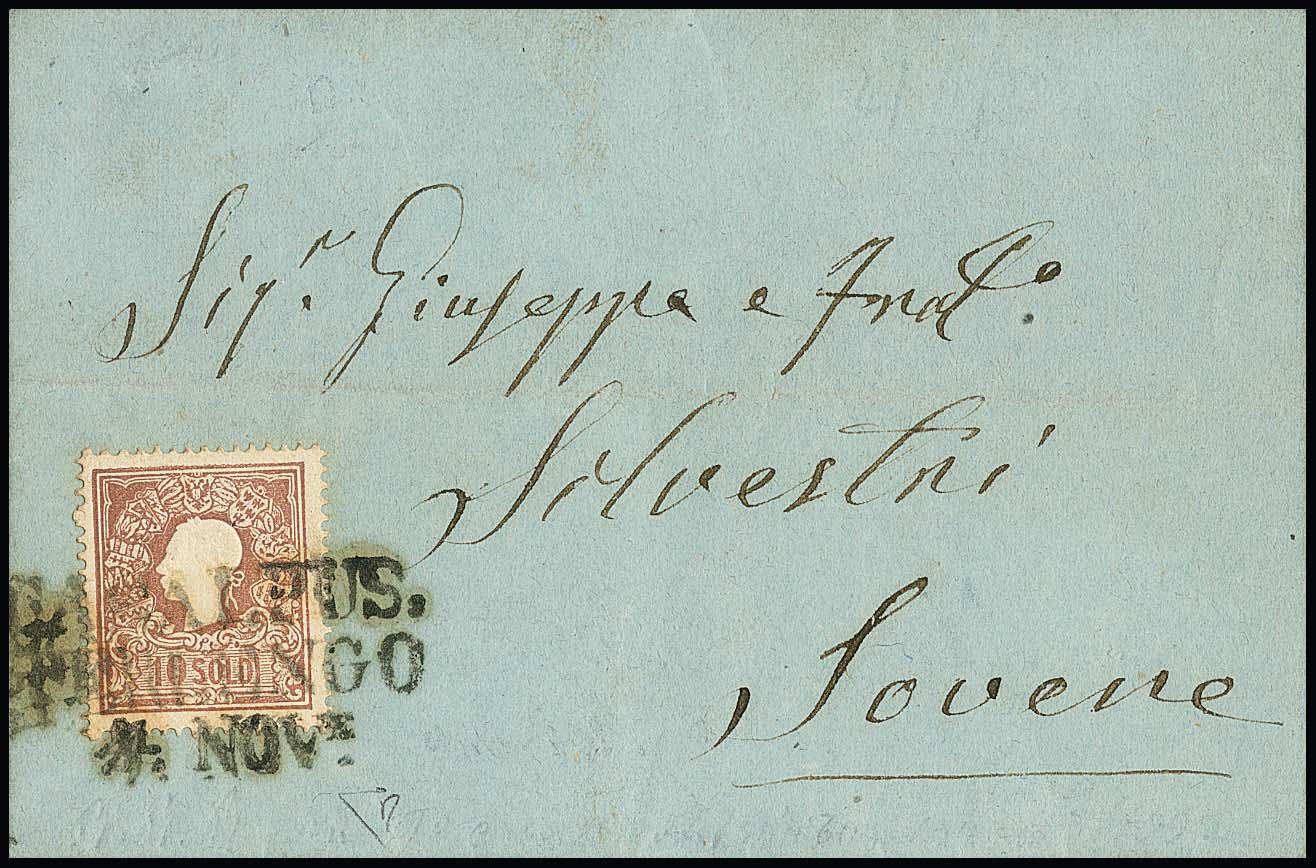 Sigr. Giuseppe e Frat.o
Silvestri
Sovere
10 SOLDI
US.
NGO
4. NOV: